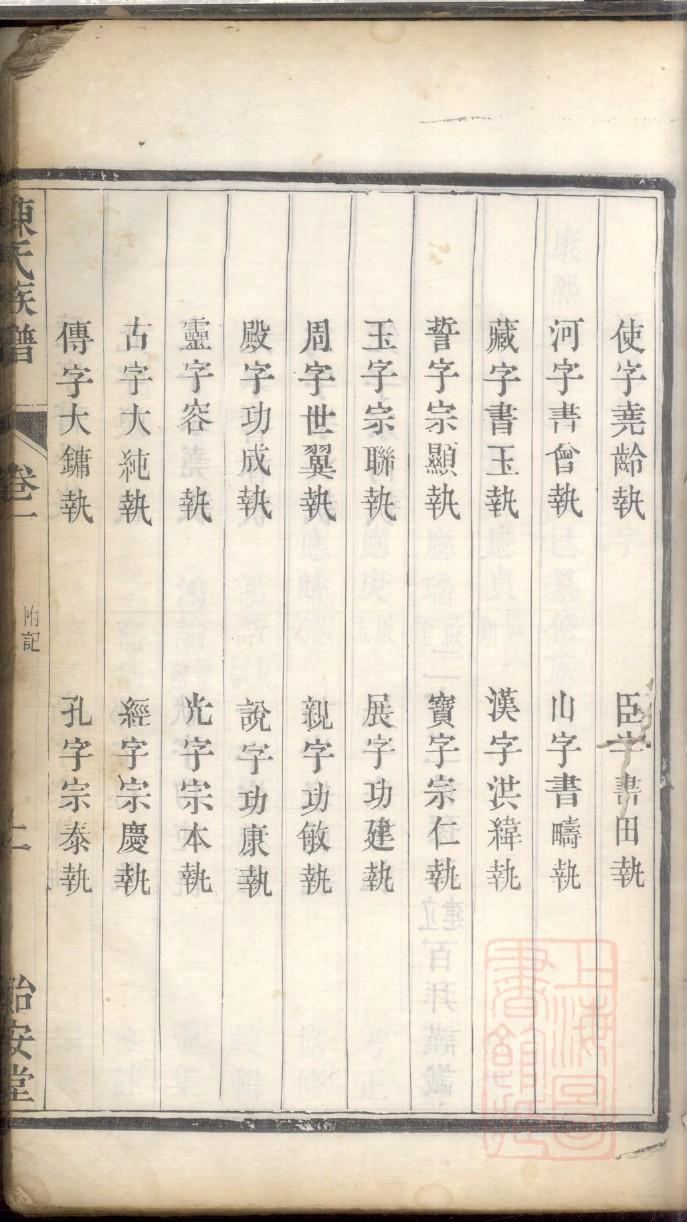 使字堯齡執　臣字書田執
河字書會執　山字書疇執
藏字書玉執　漢字洪緯執
誓字宗顯執　寶字宗仁執
玉字宗聯執　展字功建執
周字世翼執　親字功敏執
殿字功成執　說字功康執
靈字容執　光字宗本執
古字大純執　經字宗慶執
傳字大鏞執　孔字宗泰執
陳氏族譜　卷一　附記　上　貽安堂
上海圖書館藏